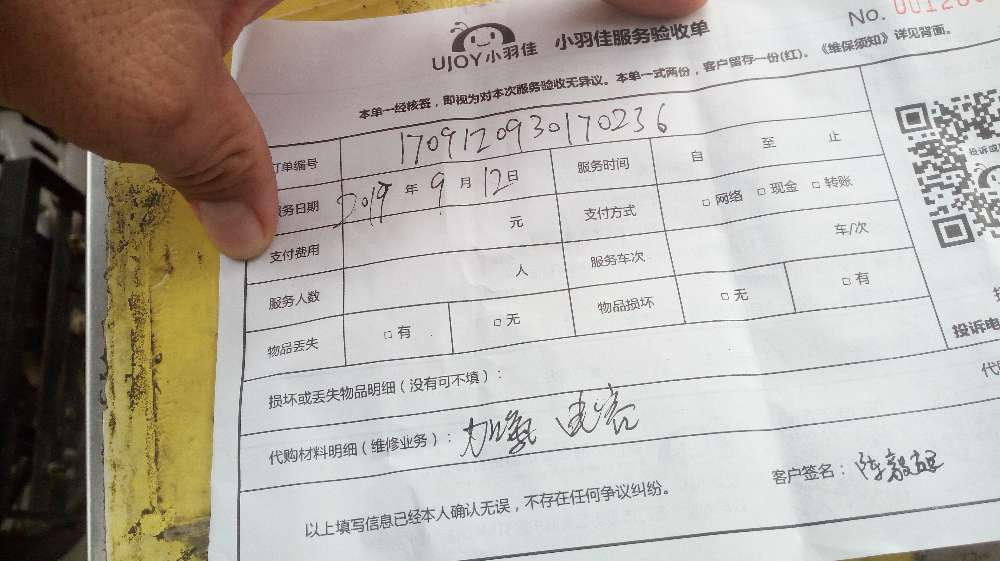 UJOY小羽佳 小羽佳服务验收单
No. 00120
本单一经核签，即视为对本次服务验收无异议。本单一式两份，客户留存一份(红)。《维保须知》详见背面。
订单编号 1709120930170236
服务日期 2017 年 9 月 12 日 服务时间 自 至 止
支付费用 元 支付方式 □ 网络 □ 现金 □ 转账
服务人数 人 服务车次 车/次
物品丢失 □ 有 □ 无 物品损坏 □ 无 □ 有
投诉电
损坏或丢失物品明细（没有可不填）：
代购材料明细（维修业务）： 加氟 电容
以上填写信息已经本人确认无误，不存在任何争议纠纷。
客户签名：